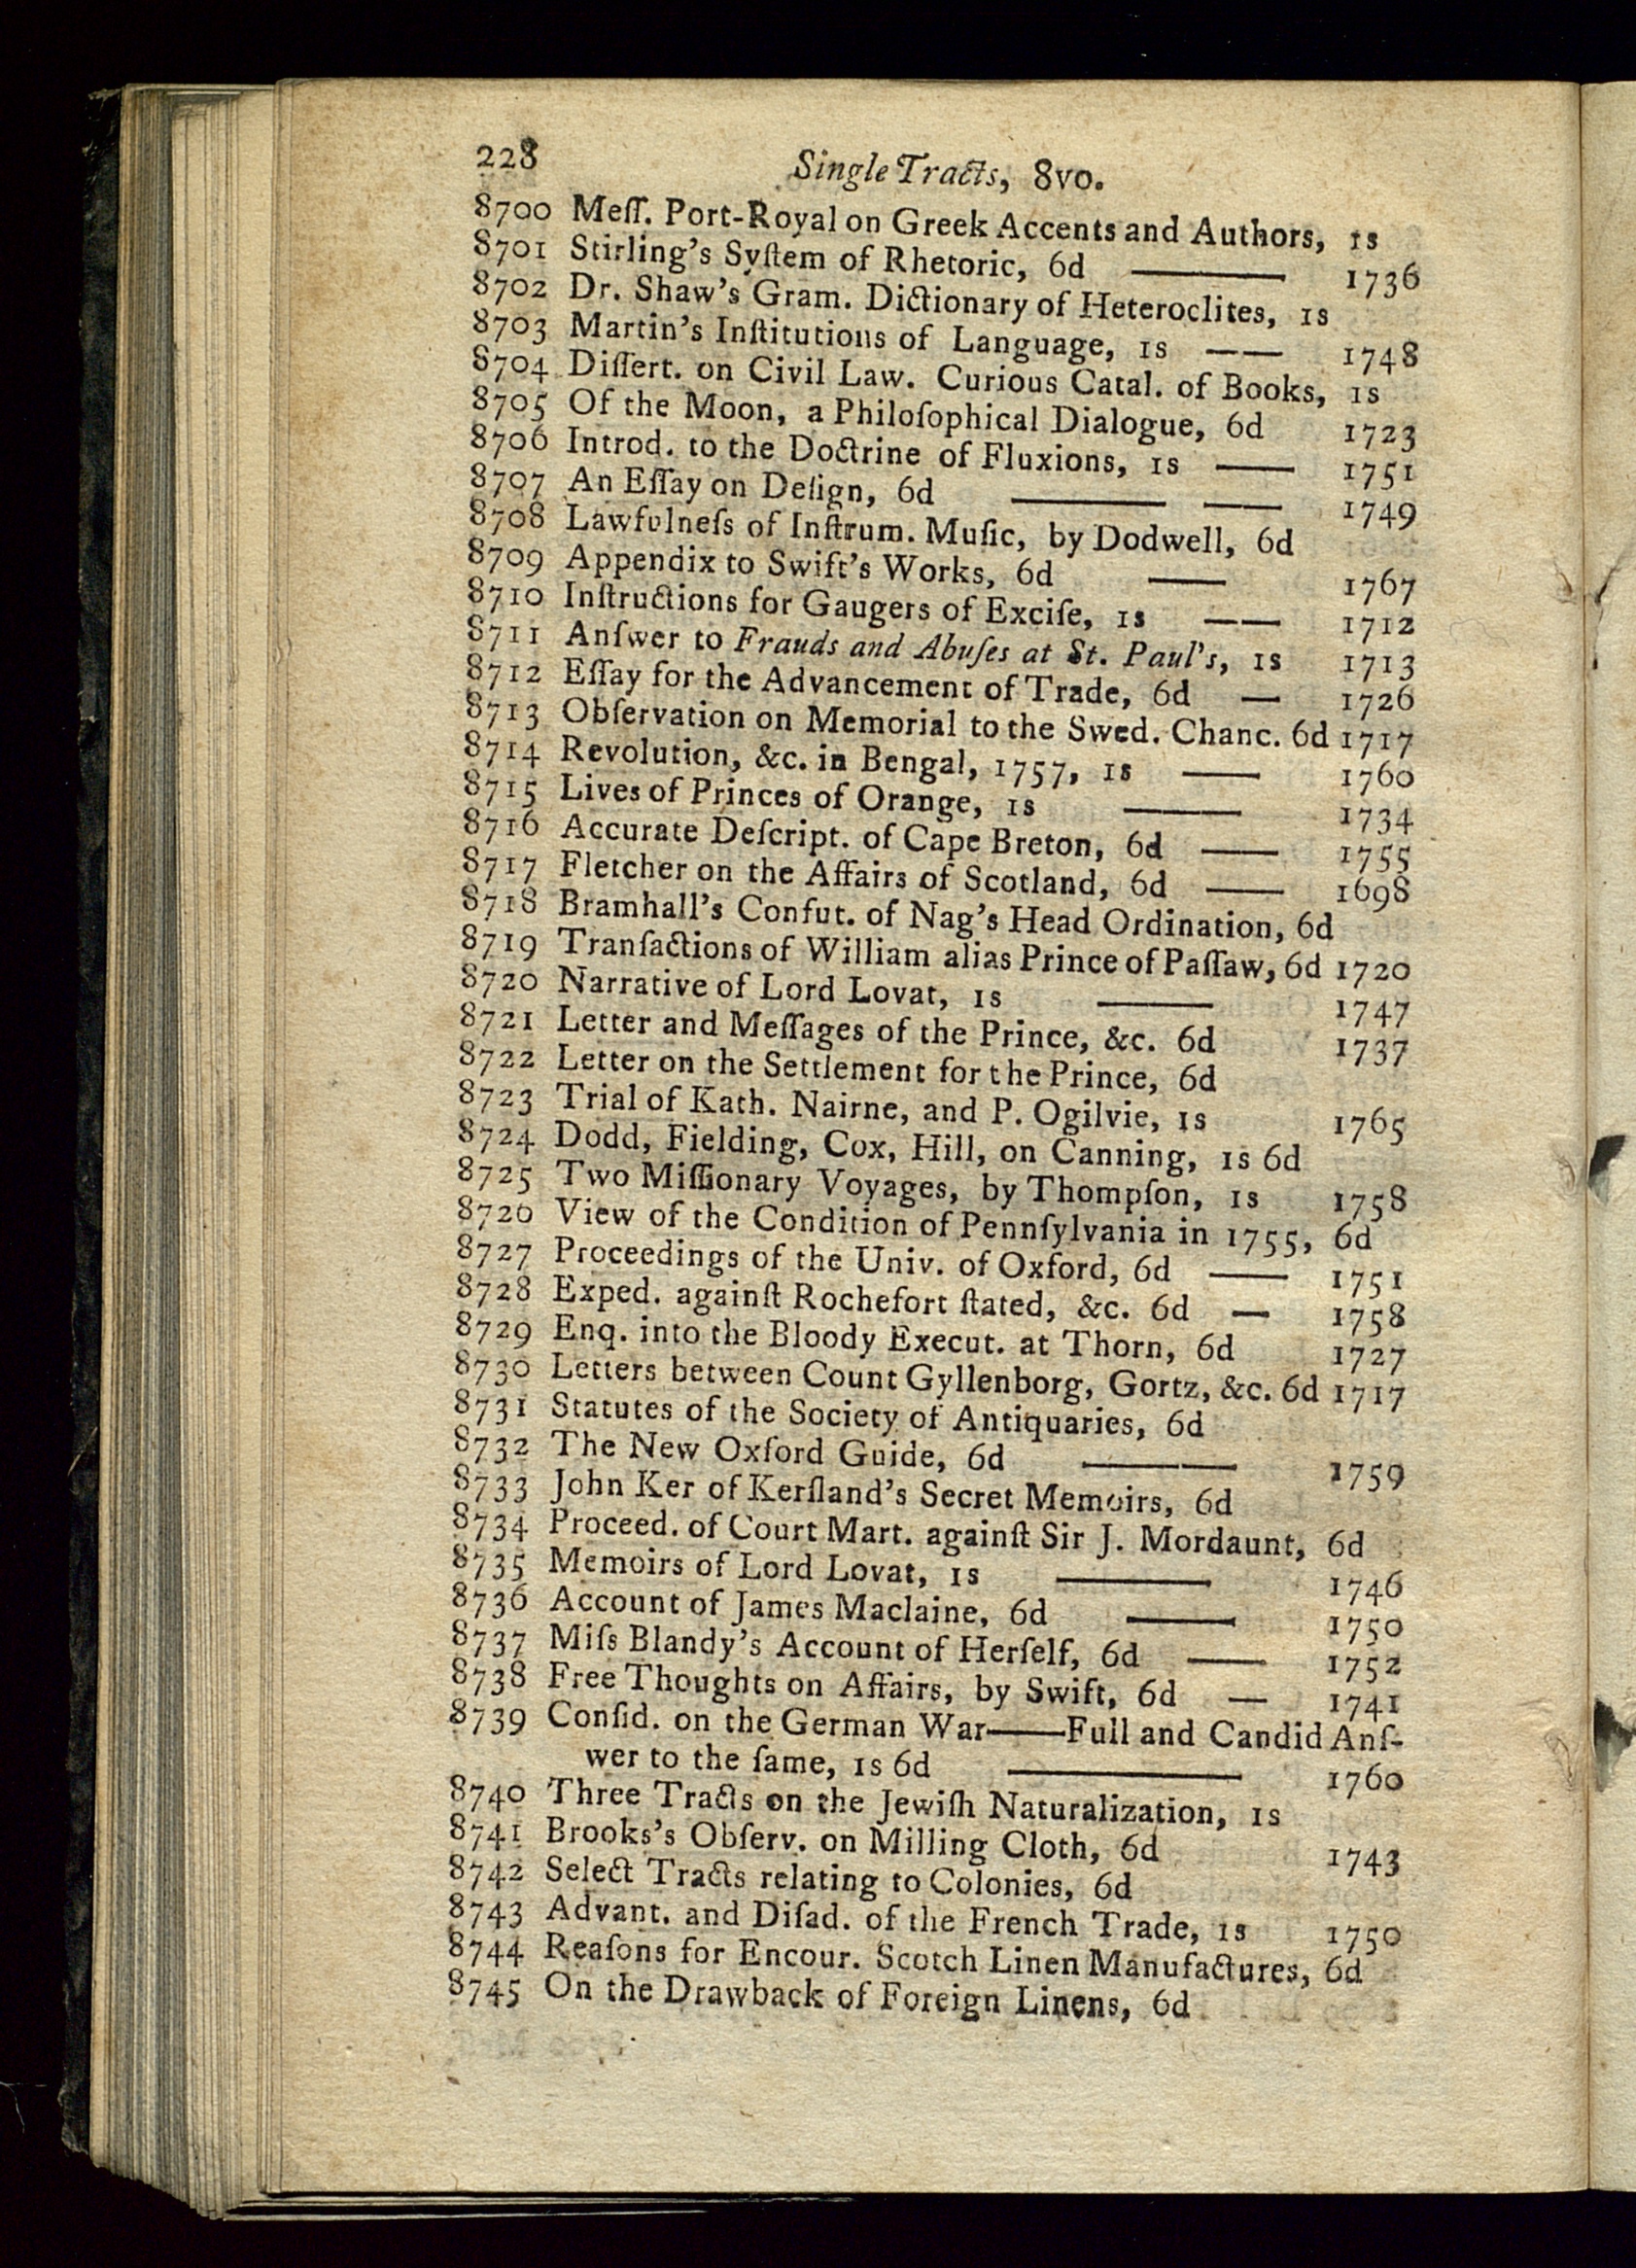 228 Single Tracts, 8vo.
8700 Meſſ. Port-Royal on Greek Accents and Authors, 1s
8701 Stirling's Syſtem of Rhetoric, 6d ——— 1736
8702 Dr. Shaw's Gram. Dictionary of Heteroclites, 1s
8703 Martin's Inſtitutions of Language, 1s —— 1748
8704 Diſſert. on Civil Law. Curious Catal. of Books, 1s
8705 Of the Moon, a Philoſophical Dialogue, 6d 1723
8706 Introd. to the Doctrine of Fluxions, 1s —— 1751
8707 An Eſſay on Deſign, 6d ——— —— 1749
8708 Lawfulneſs of Inſtrum. Muſic, by Dodwell, 6d
8709 Appendix to Swift's Works, 6d —— 1767
8710 Inſtructions for Gaugers of Exciſe, 1s —— 1712
8711 Anſwer to Frauds and Abuſes at St. Paul's, 1s 1713
8712 Eſſay for the Advancement of Trade, 6d — 1726
8713 Obſervation on Memorial to the Swed. Chanc. 6d 1717
8714 Revolution, &c. in Bengal, 1757, 1s —— 1760
8715 Lives of Princes of Orange, 1s ——— 1734
8716 Accurate Deſcript. of Cape Breton, 6d —— 1755
8717 Fletcher on the Affairs of Scotland, 6d —— 1698
8718 Bramhall's Confut. of Nag's Head Ordination, 6d
8719 Tranſactions of William alias Prince of Paſſaw, 6d 1720
8720 Narrative of Lord Lovat, 1s ——— 1747
8721 Letter and Meſſages of the Prince, &c. 6d 1737
8722 Letter on the Settlement for the Prince, 6d
8723 Trial of Kath. Nairne, and P. Ogilvie, 1s 1765
8724 Dodd, Fielding, Cox, Hill, on Canning, 1s 6d
8725 Two Miſſionary Voyages, by Thompſon, 1s 1758
8726 View of the Condition of Pennſylvania in 1755, 6d
8727 Proceedings of the Univ. of Oxford, 6d —— 1751
8728 Exped. againſt Rochefort ſtated, &c. 6d — 1758
8729 Enq. into the Bloody Execut. at Thorn, 6d 1727
8730 Letters between Count Gyllenborg, Gortz, &c. 6d 1717
8731 Statutes of the Society of Antiquaries, 6d
8732 The New Oxford Guide, 6d ——— 1759
8733 John Ker of Kerſland's Secret Memoirs, 6d
8734 Proceed. of Court Mart. againſt Sir J. Mordaunt, 6d
8735 Memoirs of Lord Lovat, 1s ——— 1746
8736 Account of James Maclaine, 6d ——— 1750
8737 Miſs Blandy's Account of Herſelf, 6d —— 1752
8738 Free Thoughts on Affairs, by Swift, 6d — 1741
8739 Conſid. on the German War——Full and Candid Anſ-
wer to the ſame, 1s 6d ———— 1760
8740 Three Tracts on the Jewiſh Naturalization, 1s
8741 Brooks's Obſerv. on Milling Cloth, 6d 1743
8742 Select Tracts relating to Colonies, 6d
8743 Advant. and Diſad. of the French Trade, 1s 1750
8744 Reaſons for Encour. Scotch Linen Manufactures, 6d
8745 On the Drawback of Foreign Linens, 6d